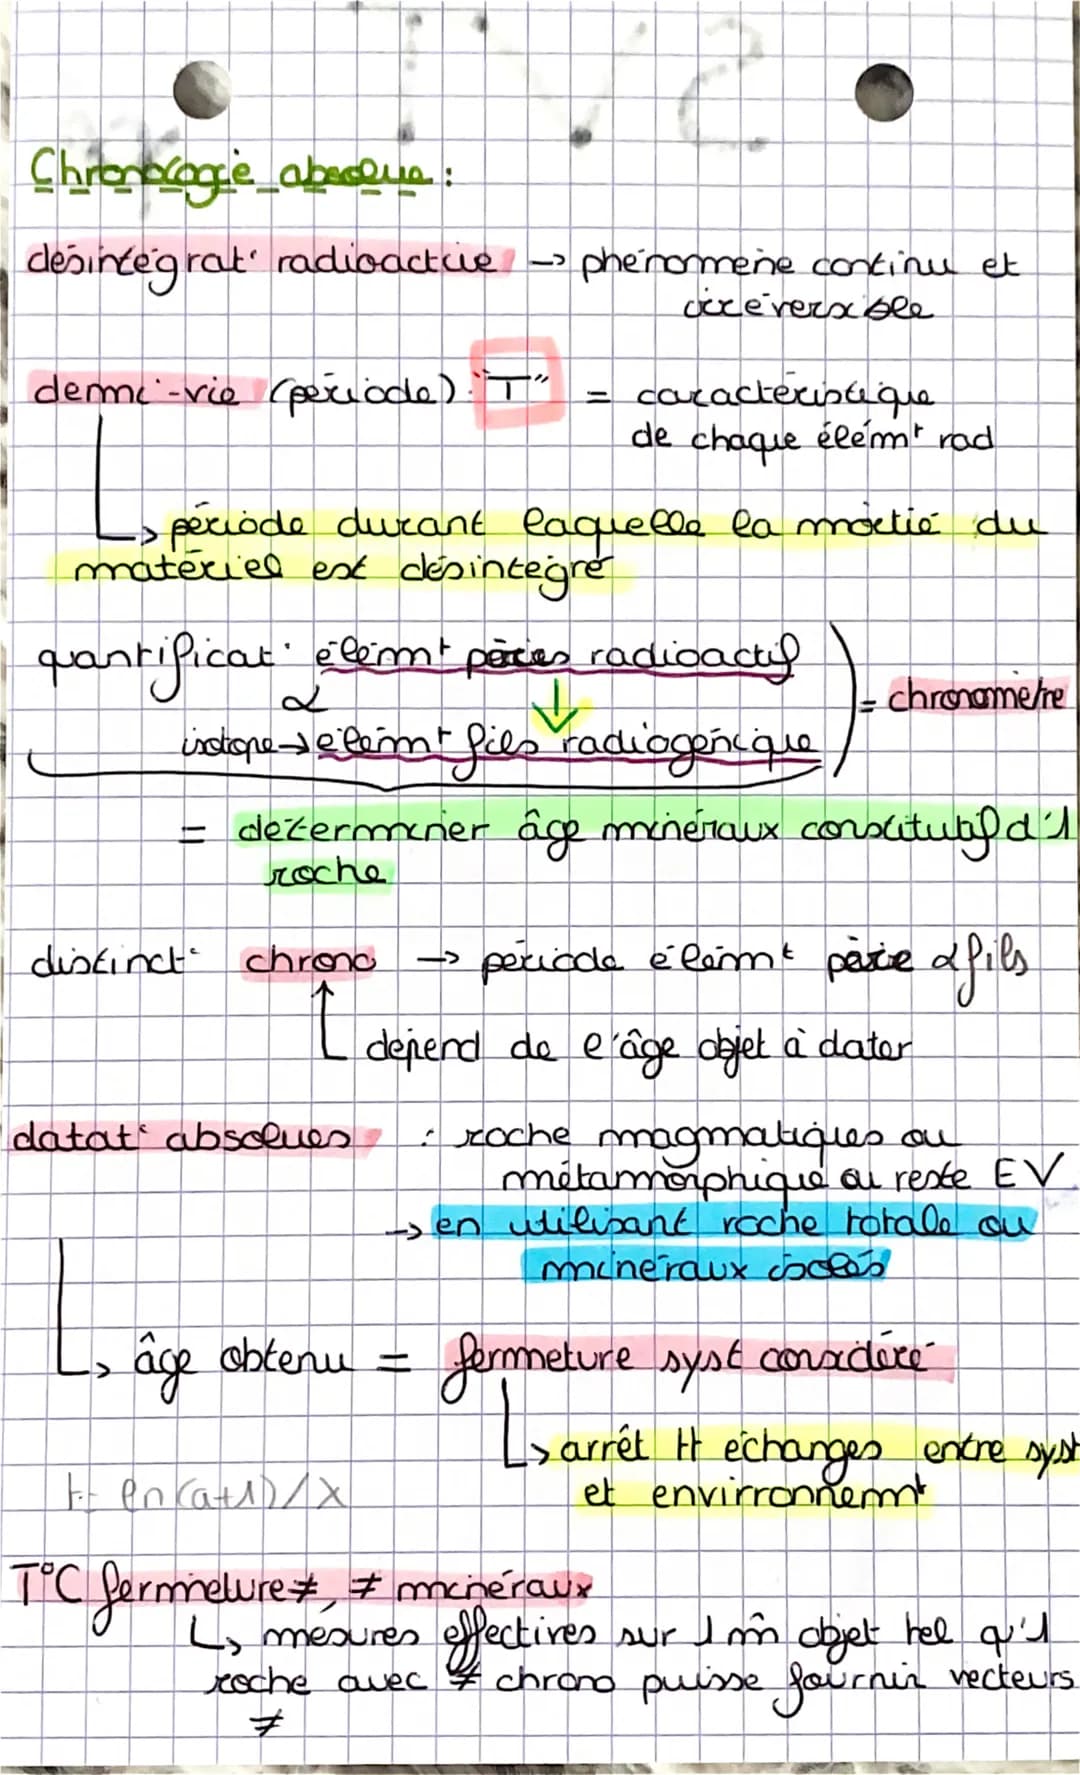 Chronologie absolue :
désintégrat° radioactive → phénomène continu et
irréversible
demi-vie (période) "T" = caractéristique
de chaque élémt rad
↳ période durant laquelle la moitié du
matériel est désintégré
quantificat° élémt pères radioactif
&
= chronomètre
isotope → élémt fils radiogénique
= déterminer âge minéraux constitutif d'1
roche
distinct° chrono → période élémt père & fils
dépend de l'âge objet à dater
datat° absolues : roche magmatiques ou
métamorphique ou reste EV
→ en utilisant roche totale ou
minéraux isolés
↳ âge obtenu = fermeture syst considéré
↳ arrêt tt échanges entre syst
et envirronnemt
t= ln(a+1)/λ
T°C fermeture ≠, ≠ minéraux
↳ mesures effectives sur 1 m̂ objet tel qu'1
roche avec ≠ chrono puisse fournir vecteurs
≠